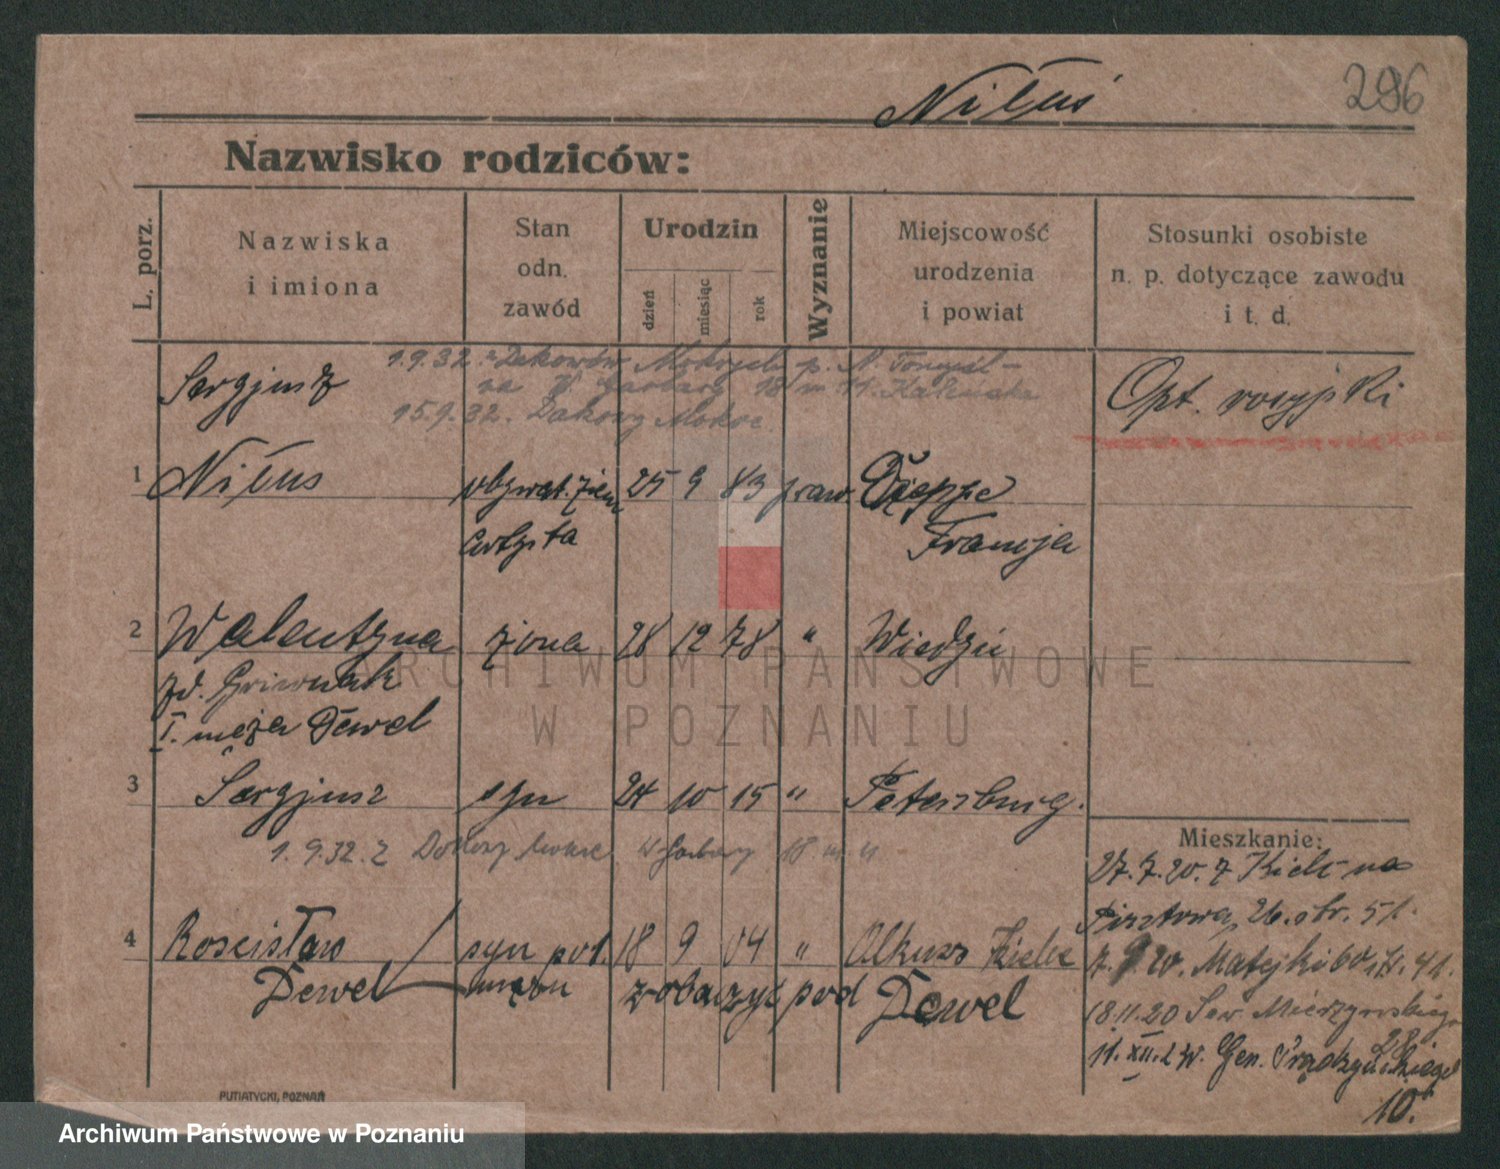 Nilus
296
Nazwisko rodziców:
L. porz.
Nazwiska
i imiona
Stan
odn.
zawód
Urodzin
dzień
miesiąc
rok
Wyznanie
Miejscowość
urodzenia
i powiat
Stosunki osobiste
n. p. dotyczące zawodu
i t. d.
1.9.32. Mokrych p. N. Tomyśl-
Garbary 18 m 11.
15.9.32. Mokre.
Sergjusz
Opt. rosyjski
1 Nilus obywat. ziem 25 9 83 praw. Dieppe
artysta Francja
2 Walentyna żona 28 12 78 " Wiedzie
zd.
I. męża Dewel
3 Sergjusz syn 24 10 15 " Petersburg.
1.9.32 z W Garbary 18 m 11
Mieszkanie:
27.7.20. z Kielc na
26. str. 51.
4 Rościsław syn po I. 18 9 04 " Olkusz Kielce
7.9.20. Matejki 60 41.
Dewel mężu zobaczyć pod Dewel
18.11.20 Sew. Mielżyńskiego
28
11.XII.2 Gen. Prądzyńskiego
10.
PUTIATYCKI, POZNAŃ
ARCHIWUM PAŃSTWOWE
W POZNANIU
Archiwum Państwowe w Poznaniu